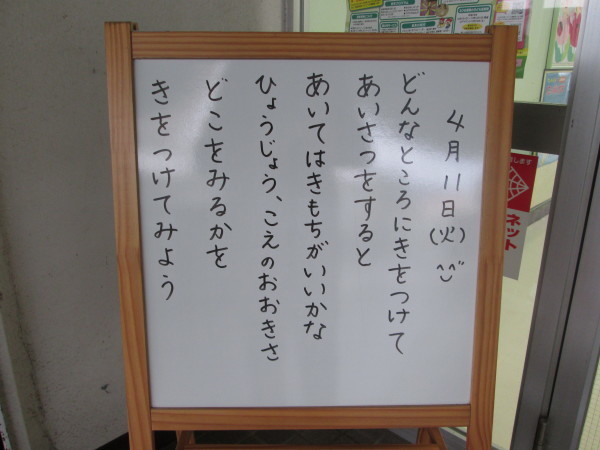 4月11日(火)
どんなところにきをつけて
あいさつをすると
あいてはきもちがいいかな
ひょうじょう、こえのおおきさ
どこをみるかを
きをつけてみよう
ネット